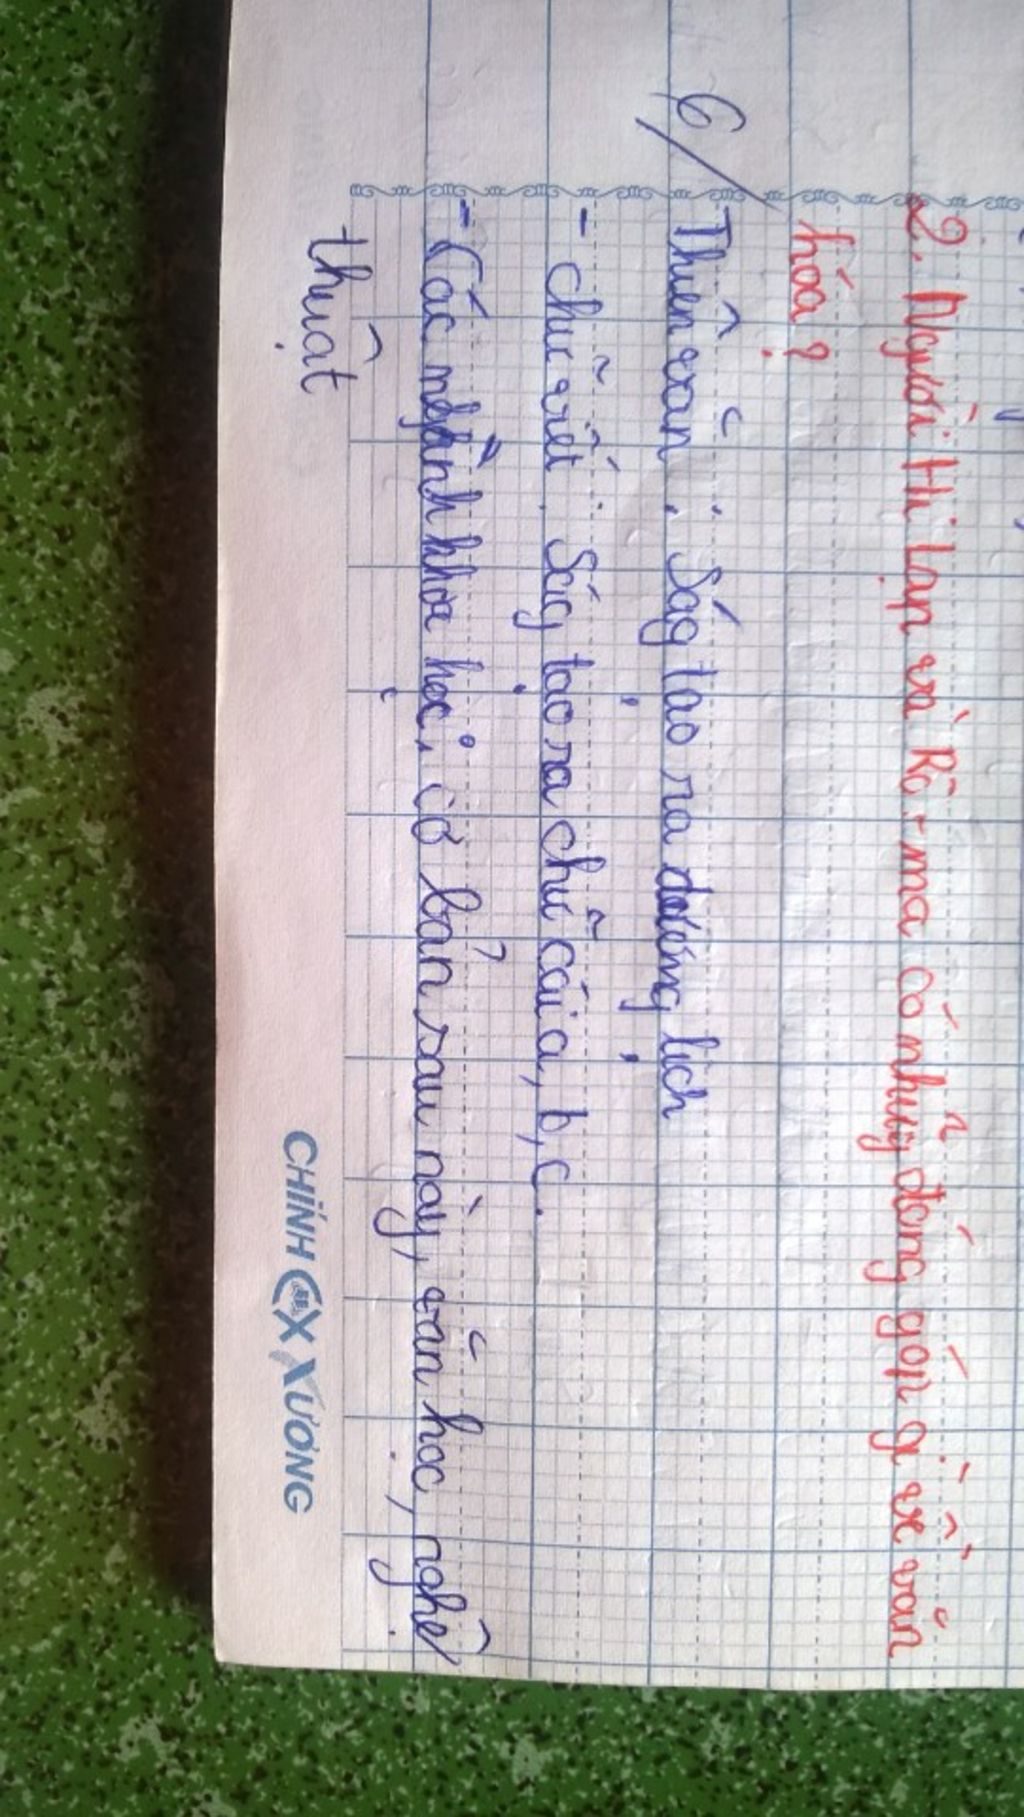 2. Người Hi Lạp và Rô-ma có những đóng góp gì về văn
hóa?
6/
Thiên văn: Sáng tạo ra dương lịch
- chữ viết: Sáng tạo ra chữ cái a, b, c.
- Các ngành khoa học cơ bản sau này, văn học, nghệ
thuật
CHÍNH CX XƯƠNG